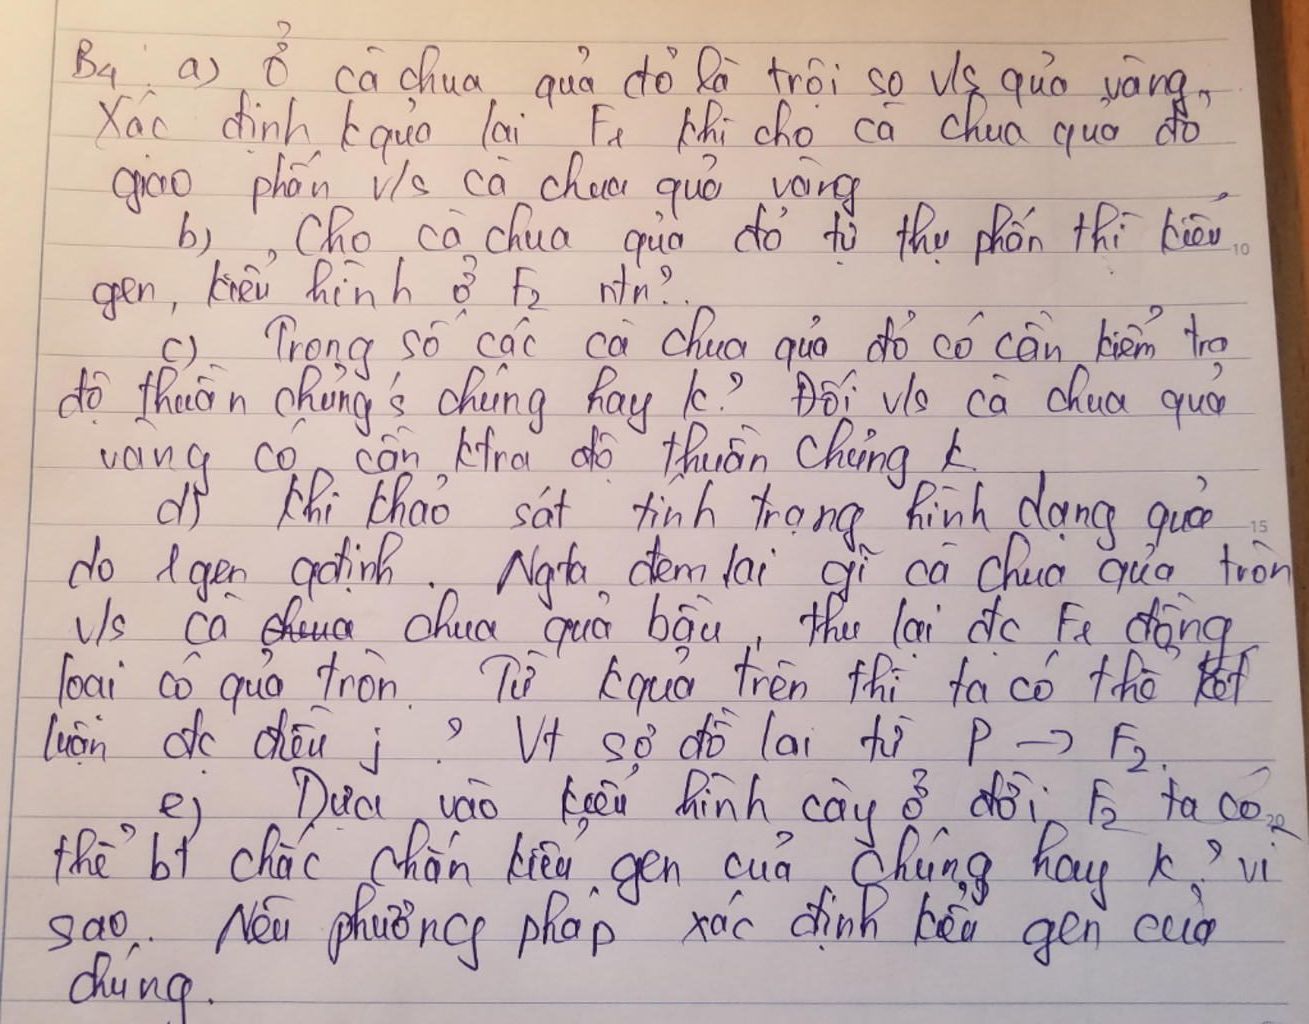 B4. a) Ở cà chua quả đỏ là trội so v/s quả vàng.
Xác định kquả lai F1 khi cho cà chua quả đỏ
giao phấn v/s cà chua quả vàng
b), Cho cà chua quả đỏ tự thụ phấn thì kiểu
10
gen, kiểu hình ở F2 ntn?.
c) Trong số các cà chua quả đỏ có cần kiểm tra
độ thuần chủng's chúng hay k? Đối v/s cà chua quả
vàng có cần ktra độ thuần chủng k.
d) Khi khảo sát tính trạng hình dạng quả
15
do 1 gen qđịnh. Ngta đem lai gĩ cà chua quả tròn
v/s cà chua chua quả bầu, thu lại đc F1 đồng
loại có quả tròn. Từ kquả trên thì ta có thể kết
luận đc điều j ? Vt sơ đồ lai từ P → F2.
e) Dựa vào kiểu hình cây ở đời F2 ta có
20
thể bt chắc chắn kiểu gen của chúng hay k? vì
sao. Nêu phương pháp xác định kiểu gen của
chúng.